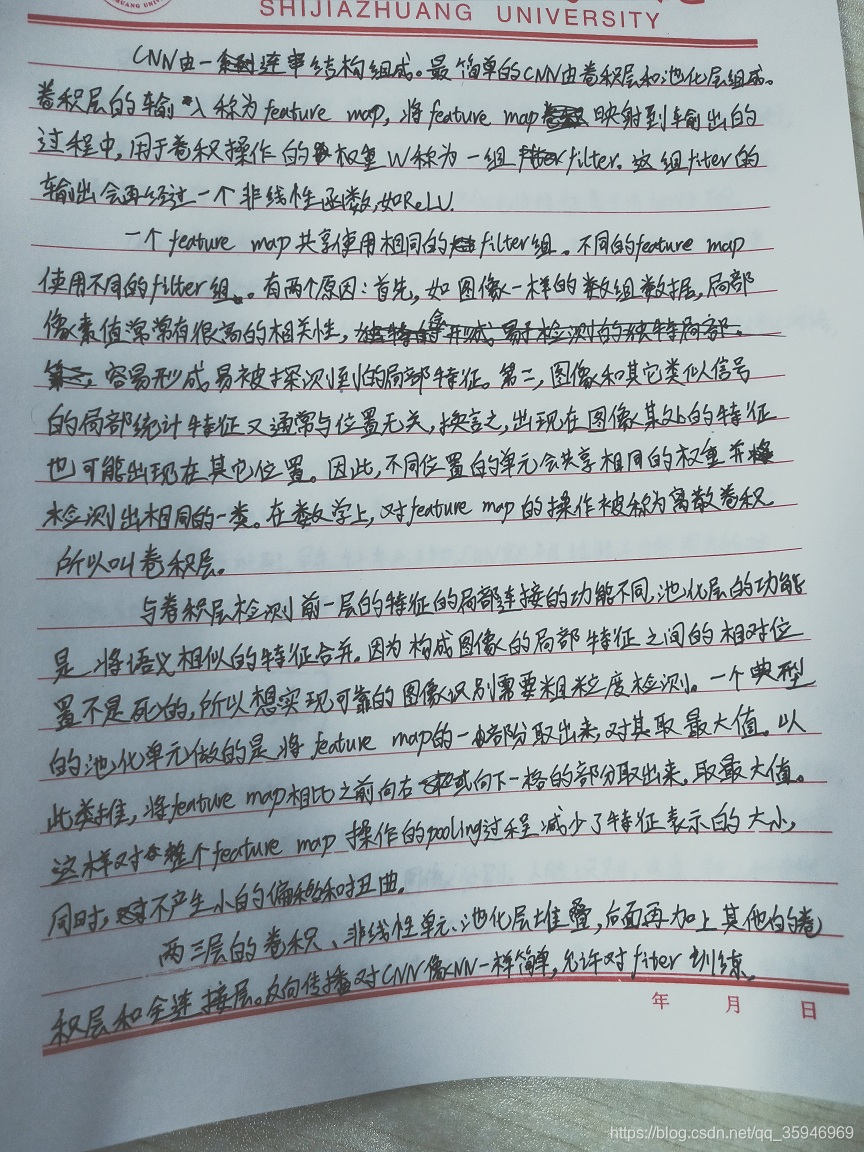 SHIJIAZHUANG UNIVERSITY
CNN由一系列连串结构组成。最简单的CNN由卷积层和池化层组成。
卷积层的输入称为feature map，将feature map映射到输出的
过程中，用于卷积操作的权重W称为一组filter。这组fiter的
输出会再经过一个非线性函数，如ReLU.
一个feature map共享使用相同的filter组。不同的feature map
使用不同的filter组。有两个原因：首先，如图像一样的数组数据，局部
像素值常常有很高的相关性，
容易形成易被探测到的局部特征。第二，图像和其它类似信号
的局部统计特征又通常与位置无关，换言之，出现在图像某处的特征
也可能出现在其它位置。因此，不同位置的单元会共享相同的权重并
检测出相同的一类。在数学上，对feature map的操作被称为离散卷积
所以叫卷积层。
与卷积层检测前一层的特征的局部连接的功能不同，池化层的功能
是将语义相似的特征合并。因为构成图像的局部特征之间的相对位
置不是死的，所以想实现可靠的图像识别需要粗粒度检测。一个典型
的池化单元做的是将feature map的一小部分取出来，对其取最大值。以
此类推，将feature map相比之前向右或向下一格的部分取出来，取最大值。
这样对整个feature map操作的pooling过程减少了特征表示的大小，
同时，对不产生小的偏移和扭曲。
两三层的卷积、非线性单元、池化层堆叠，后面再加上其他的卷
积层和全连接层。反向传播对CNN像NN一样简单，允许对fiter训练。
年 月 日
https://blog.csdn.net/qq_35946969